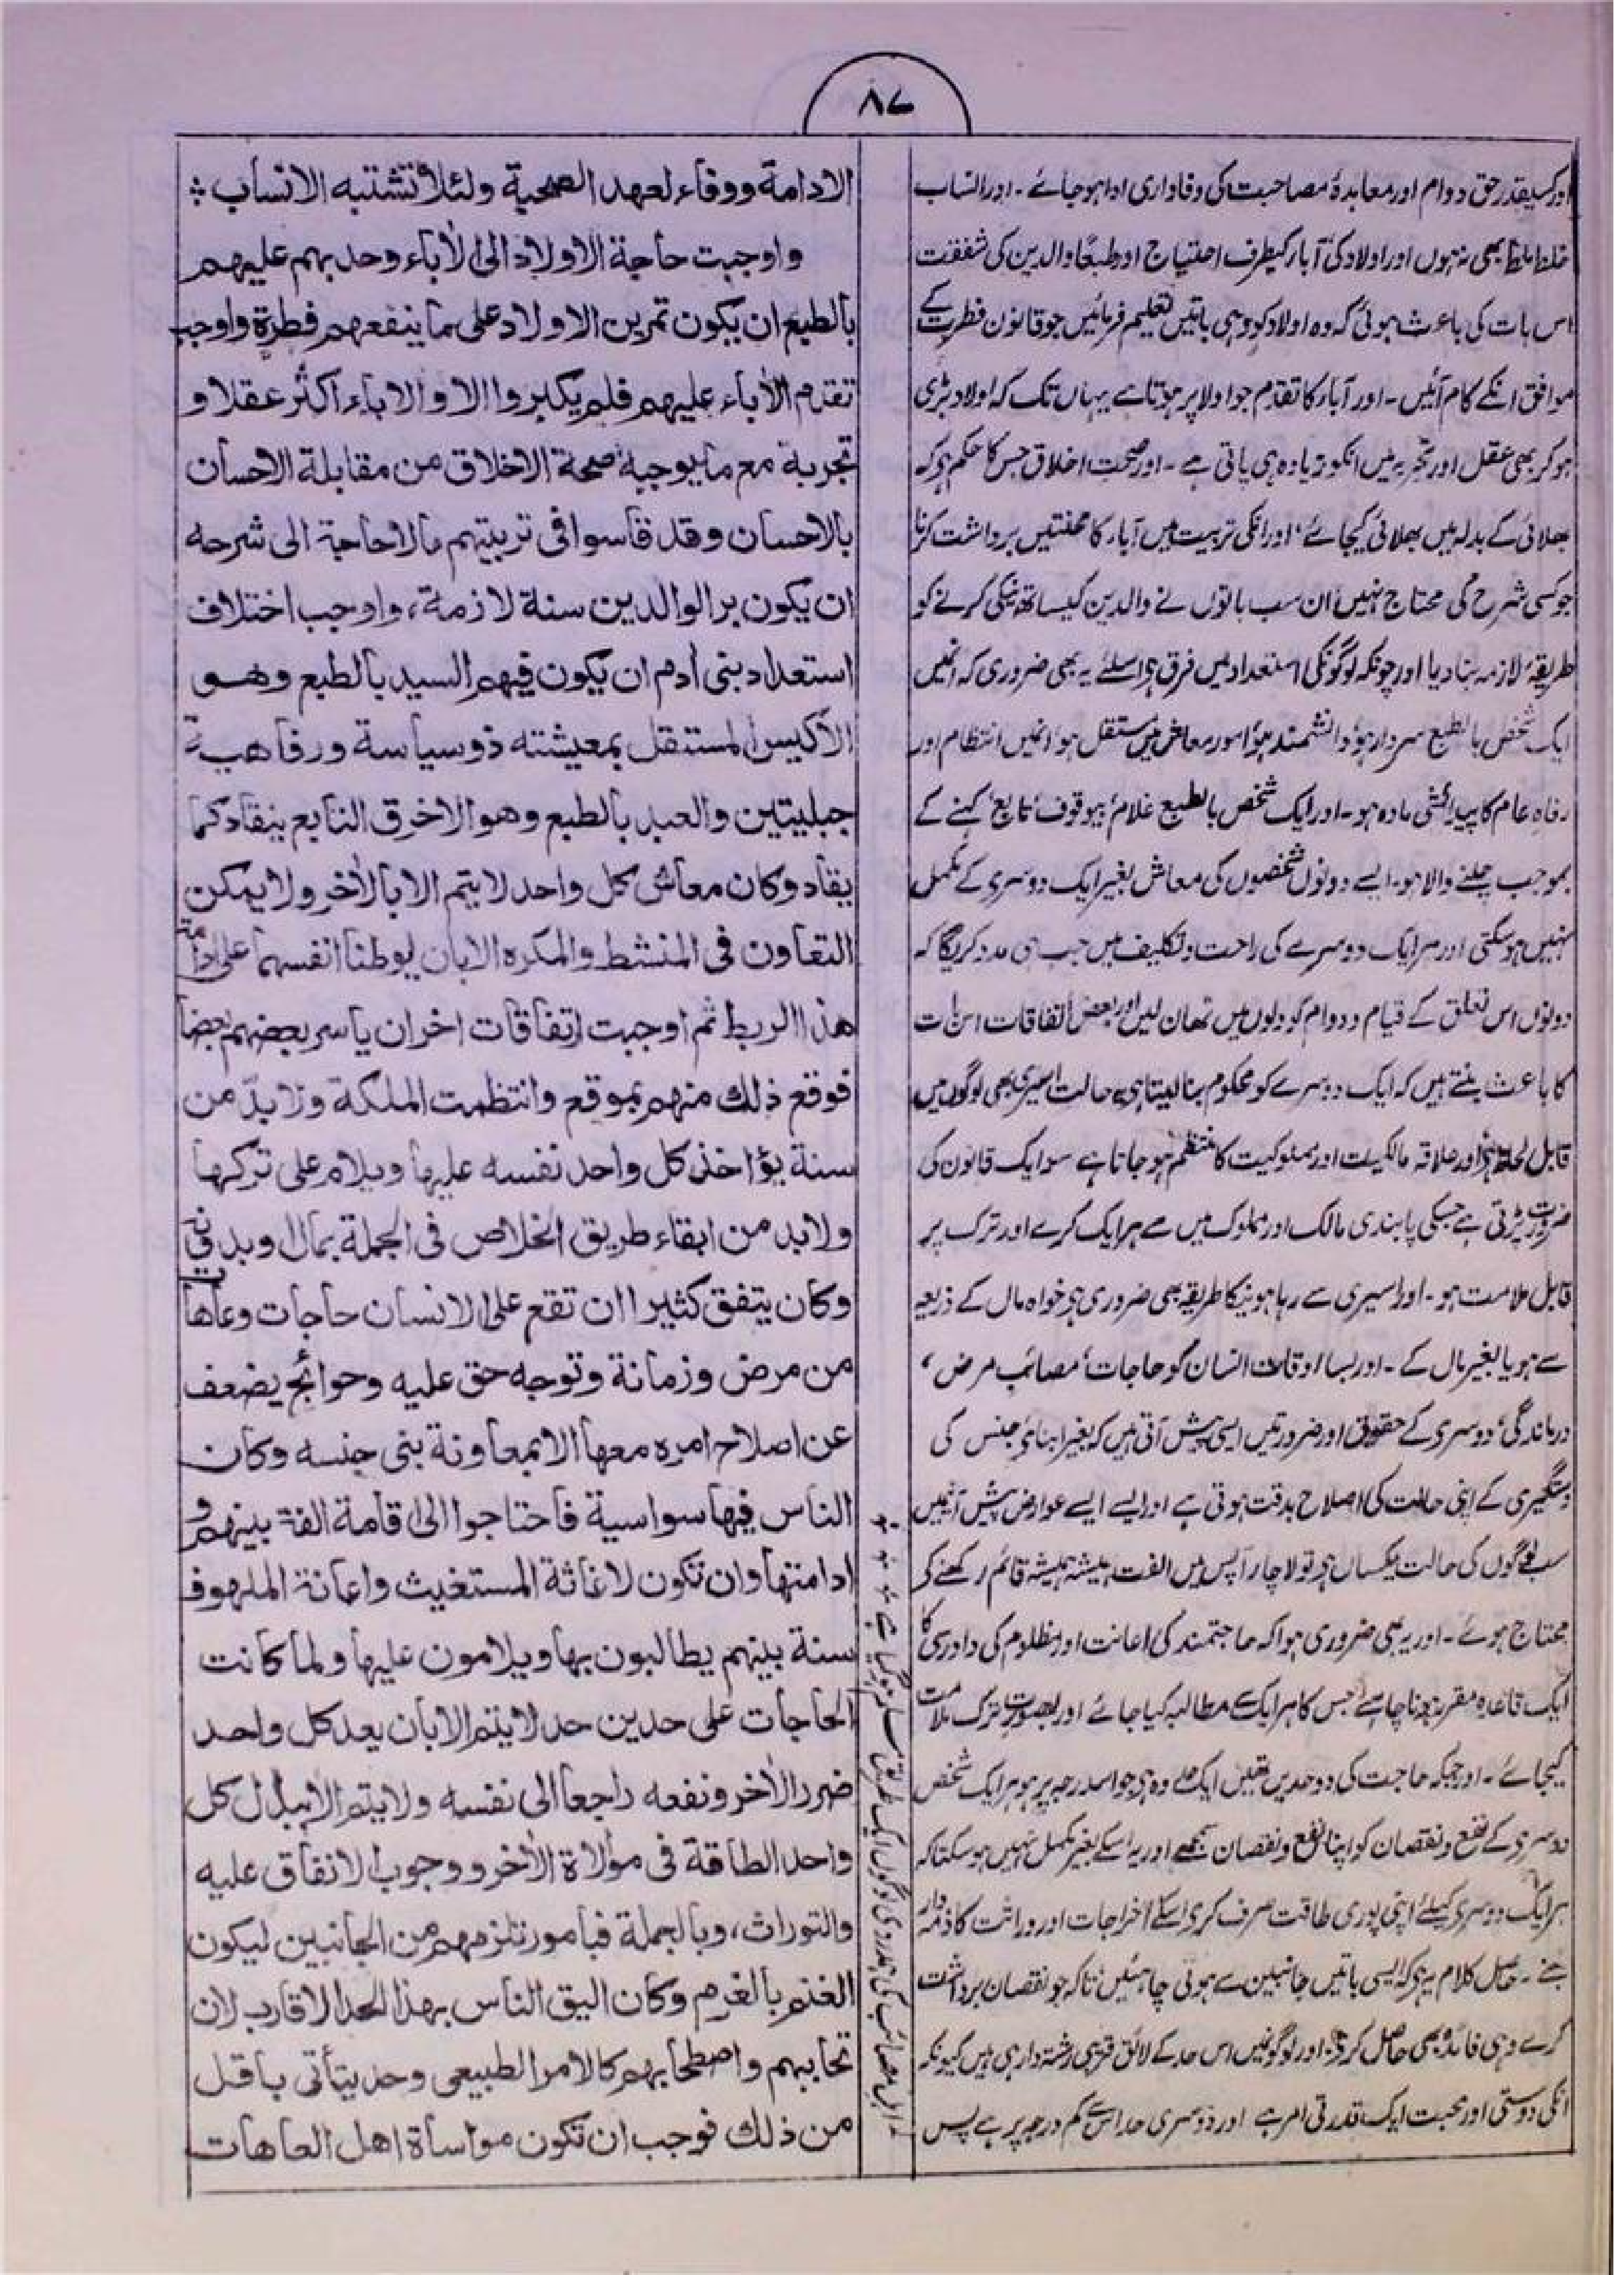 ۸۷
اور کسیقدر حق دوام اور معاہدۂ مصاحبت کی وفاداری ادا ہو جائے ۔ اور انساب
خلط ملط بھی نہ ہوں اور اولاد کی آباء کیطرف احتیاج اور طبعًا والدین کی شفقت
اس بات کی باعث ہوئی کہ وہ اولاد کو وہی باتیں تعلیم فرمائیں جو قانون فطرت کے
موافق انکے کام آئیں ۔ اور آباء کا تقدم جو اولاد پر ہوتا ہے یہاں تک کہ اولاد بڑی
ہو کر بھی عقل اور تجربہ میں انکو زیادہ ہی پاتی ہے ۔ اور صحت اخلاق جس کا حکم ہی کہ
بھلائی کے بدلہ میں بھلائی کیجائے، اور انکی تربیت میں آباء کا محنتیں برداشت کرنا
جو کسی شرح کی محتاج نہیں ان سب باتوں نے والدین کیساتھ نیکی کرنے کو
طریقۂ لازمہ بنا دیا اور چونکہ لوگونکی استعداد میں فرق ہی اسلئے یہ بھی ضروری کہ انمیں
ایک شخص بالطبع سردار ہو، دانشمند ہو، امور معاش میں مستقل ہو انمیں انتظام اور
رفاہ عام کا پیدائشی مادہ ہو ۔ اور ایک شخص بالطبع غلام، بیوقوف، تابع، کہنے کے
بموجب چلنے والا ہو ۔ ایسے دونوں شخصوں کی معاش بغیر ایک دوسری کے مکمل
نہیں ہو سکتی اور ہر ایک دوسرے کی راحت و تکلیف میں جب ہی مدد کریگا کہ
دونوں اس تعلق کے قیام و دوام کو دلوں میں ٹھان لیں اور بعض اتفاقات اس بات
کا باعث بنتے ہیں کہ ایک دوسرے کو محکوم بنا لیتا ہی یہ حالت اسیری بھی لوگوں میں
قابل لحاظ ہی اور علاقہ مالکیت اور مملوکیت کا منتظم ہو جاتا ہے سو ایک قانون کی
ضرورت پڑتی ہے جسکی پابندی مالک اور مملوک میں سے ہر ایک کرے اور ترک پر
قابل ملامت ہو ۔ اور اسیری سے رہا ہونیکا طریقہ بھی ضروری ہی خواہ مال کے ذریعہ
سے ہو یا بغیر مال کے ۔ اور بسا اوقات انسان کو حاجات، مصائب مرض،
درماندگی، دوسری کے حقوق اور ضرورتیں ایسی پیش آتی ہیں کہ بغیر ابنائے جنس کی
دستگیری کے اپنی حالت کی اصلاح بدقت ہوتی ہے اور ایسے ایسے عوارض پیش آنیمیں
سب لوگوں کی حالت یکساں ہی تو لاچار آپس میں الفت ہمیشہ ہمیشہ قائم رکھنے کے
محتاج ہوئے ۔ اور یہ بھی ضروری ہوا کہ حاجتمند کی اعانت اور مظلوم کی دادرسی کا
ایک قاعدہ مقرر ہونا چاہئے جس کا ہر ایک سے مطالبہ کیا جائے اور بصورت ترک ملامت
کیجائے ۔ اور جبکہ حاجت کی دو حدیں تھیں ایک حد وہ ہی جو اس درجہ پر ہو ہر ایک شخص
دوسری کے نفع و نقصان کو اپنا نفع و نقصان سمجھے اور یہ اسکے بغیر مکمل نہیں ہو سکتا کہ
ہر ایک دوسری کیلئے اپنی پوری طاقت صرف کری اسکے اخراجات اور وراثت کا ذمہ دار
بنے ۔ حاصل کلام یہ ہی کہ ایسی باتیں جانبین سے ہونی چاہئیں تاکہ جو نقصان برداشت
کرے وہی فائدہ بھی حاصل کرے اور لوگونمیں اس حد کے لائق قریبی رشتہ دار ہی ہیں کیونکہ
انکی دوستی اور محبت ایک قدرتی امر ہے اور دوسری حد اس سے کم درجہ پر ہے پس
الادامة ووفاء لعهد الصحبة ولئلا تشتبه الانساب ؞
واوجبت حاجة الاولاد الى الأباء وحدبهم عليهم
بالطبع ان يكون تمرين الاولاد على ما ينفعهم فطرة واوجب
تقدم الأباء عليهم فلم يكبروا الا والاباء اكثر عقلا و
تجربة مع ما يوجبه صحة الاخلاق من مقابلة الاحسان
بالاحسان وقد قاسوا فى تربيتهم مالا حاجة الى شرحه
ان يكون بر الوالدين سنة لازمة، واوجب اختلاف
استعداد بنى أدم ان يكون فيهم السيد بالطبع وهو
الأكيس المستقل بمعيشته ذو سياسة ورفاهية
جبليتين والعبد بالطبع وهو الاخرق التابع ينقاد كما
يقاد وكان معاش كل واحد لا يتم الا بالأخر ولا يمكن
التعاون فى المنشط والمكره الا بان يوطنا انفسهما على ادامة
هذا الربط ثم اوجبت اتفاقات اخر ان ياسر بعضهم بعضا
فوقع ذلك منهم بموقع وانتظمت الملكة ولا بد من
سنة يؤاخذ كل واحد نفسه عليها ويلام على تركها
ولا بد من ابقاء طريق الخلاص فى الجملة بمال وبدونه
وكان يتفق كثيرا ان تقع على الانسان حاجات وعاهات
من مرض وزمانة وتوجه حق عليه وحوائج يضعف
عن اصلاح امره معها الا بمعاونة بنى جنسه وكان
الناس فيها سواسية فاحتاجوا الى اقامة الفة بينهم و
ادامتها وان تكون لاغاثة المستغيث واعانة الملهوف
سنة بينهم يطالبون بها ويلامون عليها ولما كانت
الحاجات على حدين حد لا يتم الا بان يعد كل واحد
ضرر الأخر ونفعه راجعا الى نفسه ولا يتم الا ببذل كل
واحد الطاقة فى موالاة الأخر ووجوب الانفاق عليه
والتوراث، وبالجملة فبامور تلزمهم من الجانبين ليكون
الغنم بالغرم وكان اليق الناس بهذا الحد الاقارب لان
تحاببهم واصطحابهم كالامر الطبيعى وحد يتأتى باقل
من ذلك فوجب ان تكون مواساة اهل العاهات